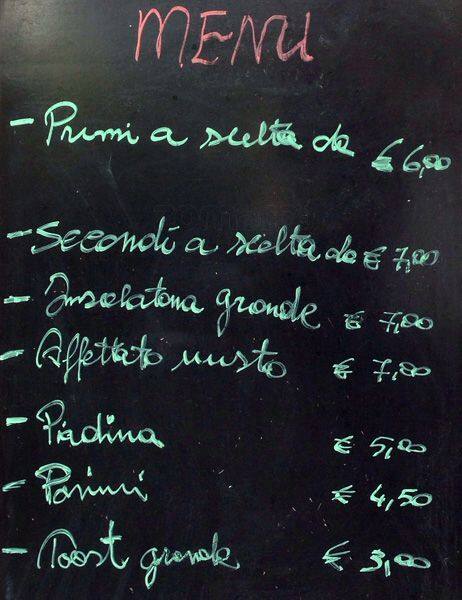 MENU
- Primi a scelta da € 6,00
- Secondi a scelta da € 7,00
- Insalatona grande € 7,00
- Affettato misto € 7,00
- Piadina € 5,00
- Panini € 4,50
- Toast grande € 3,00